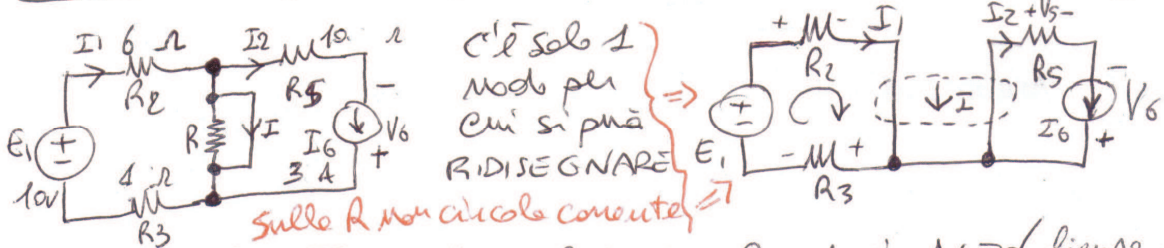 I1 6 Ω I2 10 Ω
R2 R5
E1 + - 10V
R I
I6 3 A
- V6 +
1 Ω
R3
c'è solo 1
nodo per
cui si può
RIDISEGNARE
Sulla R non circola corrente
+ - I1 I2 +V5-
R2 R5
E1 + - I I6 - V6 +
- +
R3